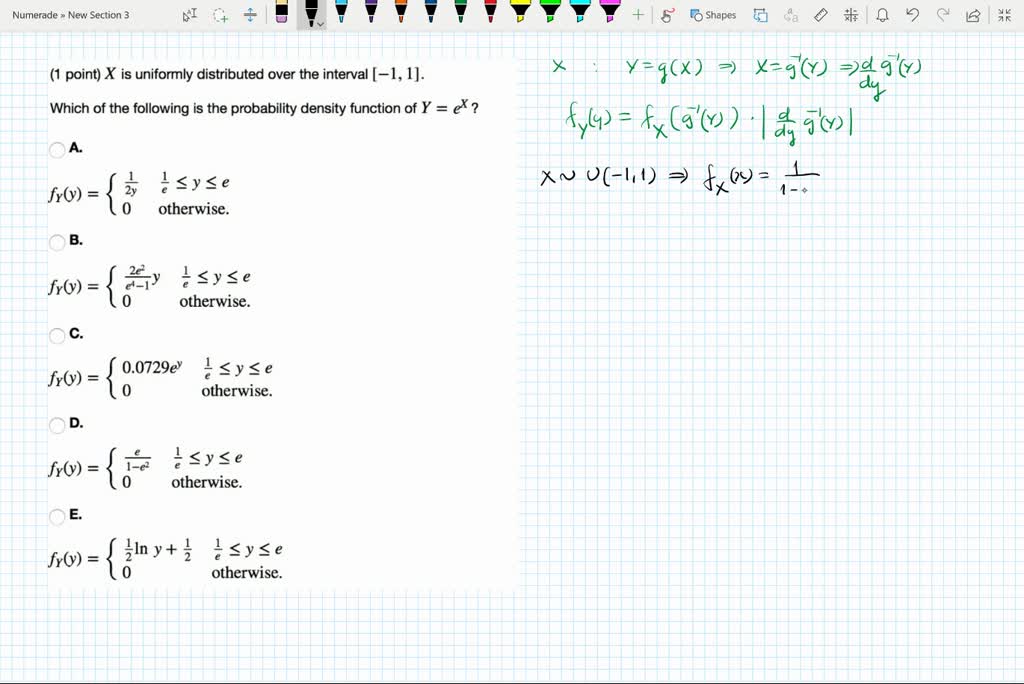 Numerade » New Section 3
Shapes
(1 point) X is uniformly distributed over the interval [−1, 1].
Which of the following is the probability density function of Y = e^X ?
A.
f_Y(y) = { 1/(2y)   1/e ≤ y ≤ e
0   otherwise.
B.
f_Y(y) = { 2e²/(e⁴−1) y   1/e ≤ y ≤ e
0   otherwise.
C.
f_Y(y) = { 0.0729e^y   1/e ≤ y ≤ e
0   otherwise.
D.
f_Y(y) = { e/(1−e²)   1/e ≤ y ≤ e
0   otherwise.
E.
f_Y(y) = { 1/2 ln y + 1/2   1/e ≤ y ≤ e
0   otherwise.
X : Y = g(X) ⇒ X = g⁻¹(Y) ⇒ d/dy g⁻¹(Y)
f_Y(y) = f_X(g⁻¹(Y)) · | d/dy g⁻¹(Y) |
X ~ U(-1,1) ⇒ f_X(x) = 1/(1-